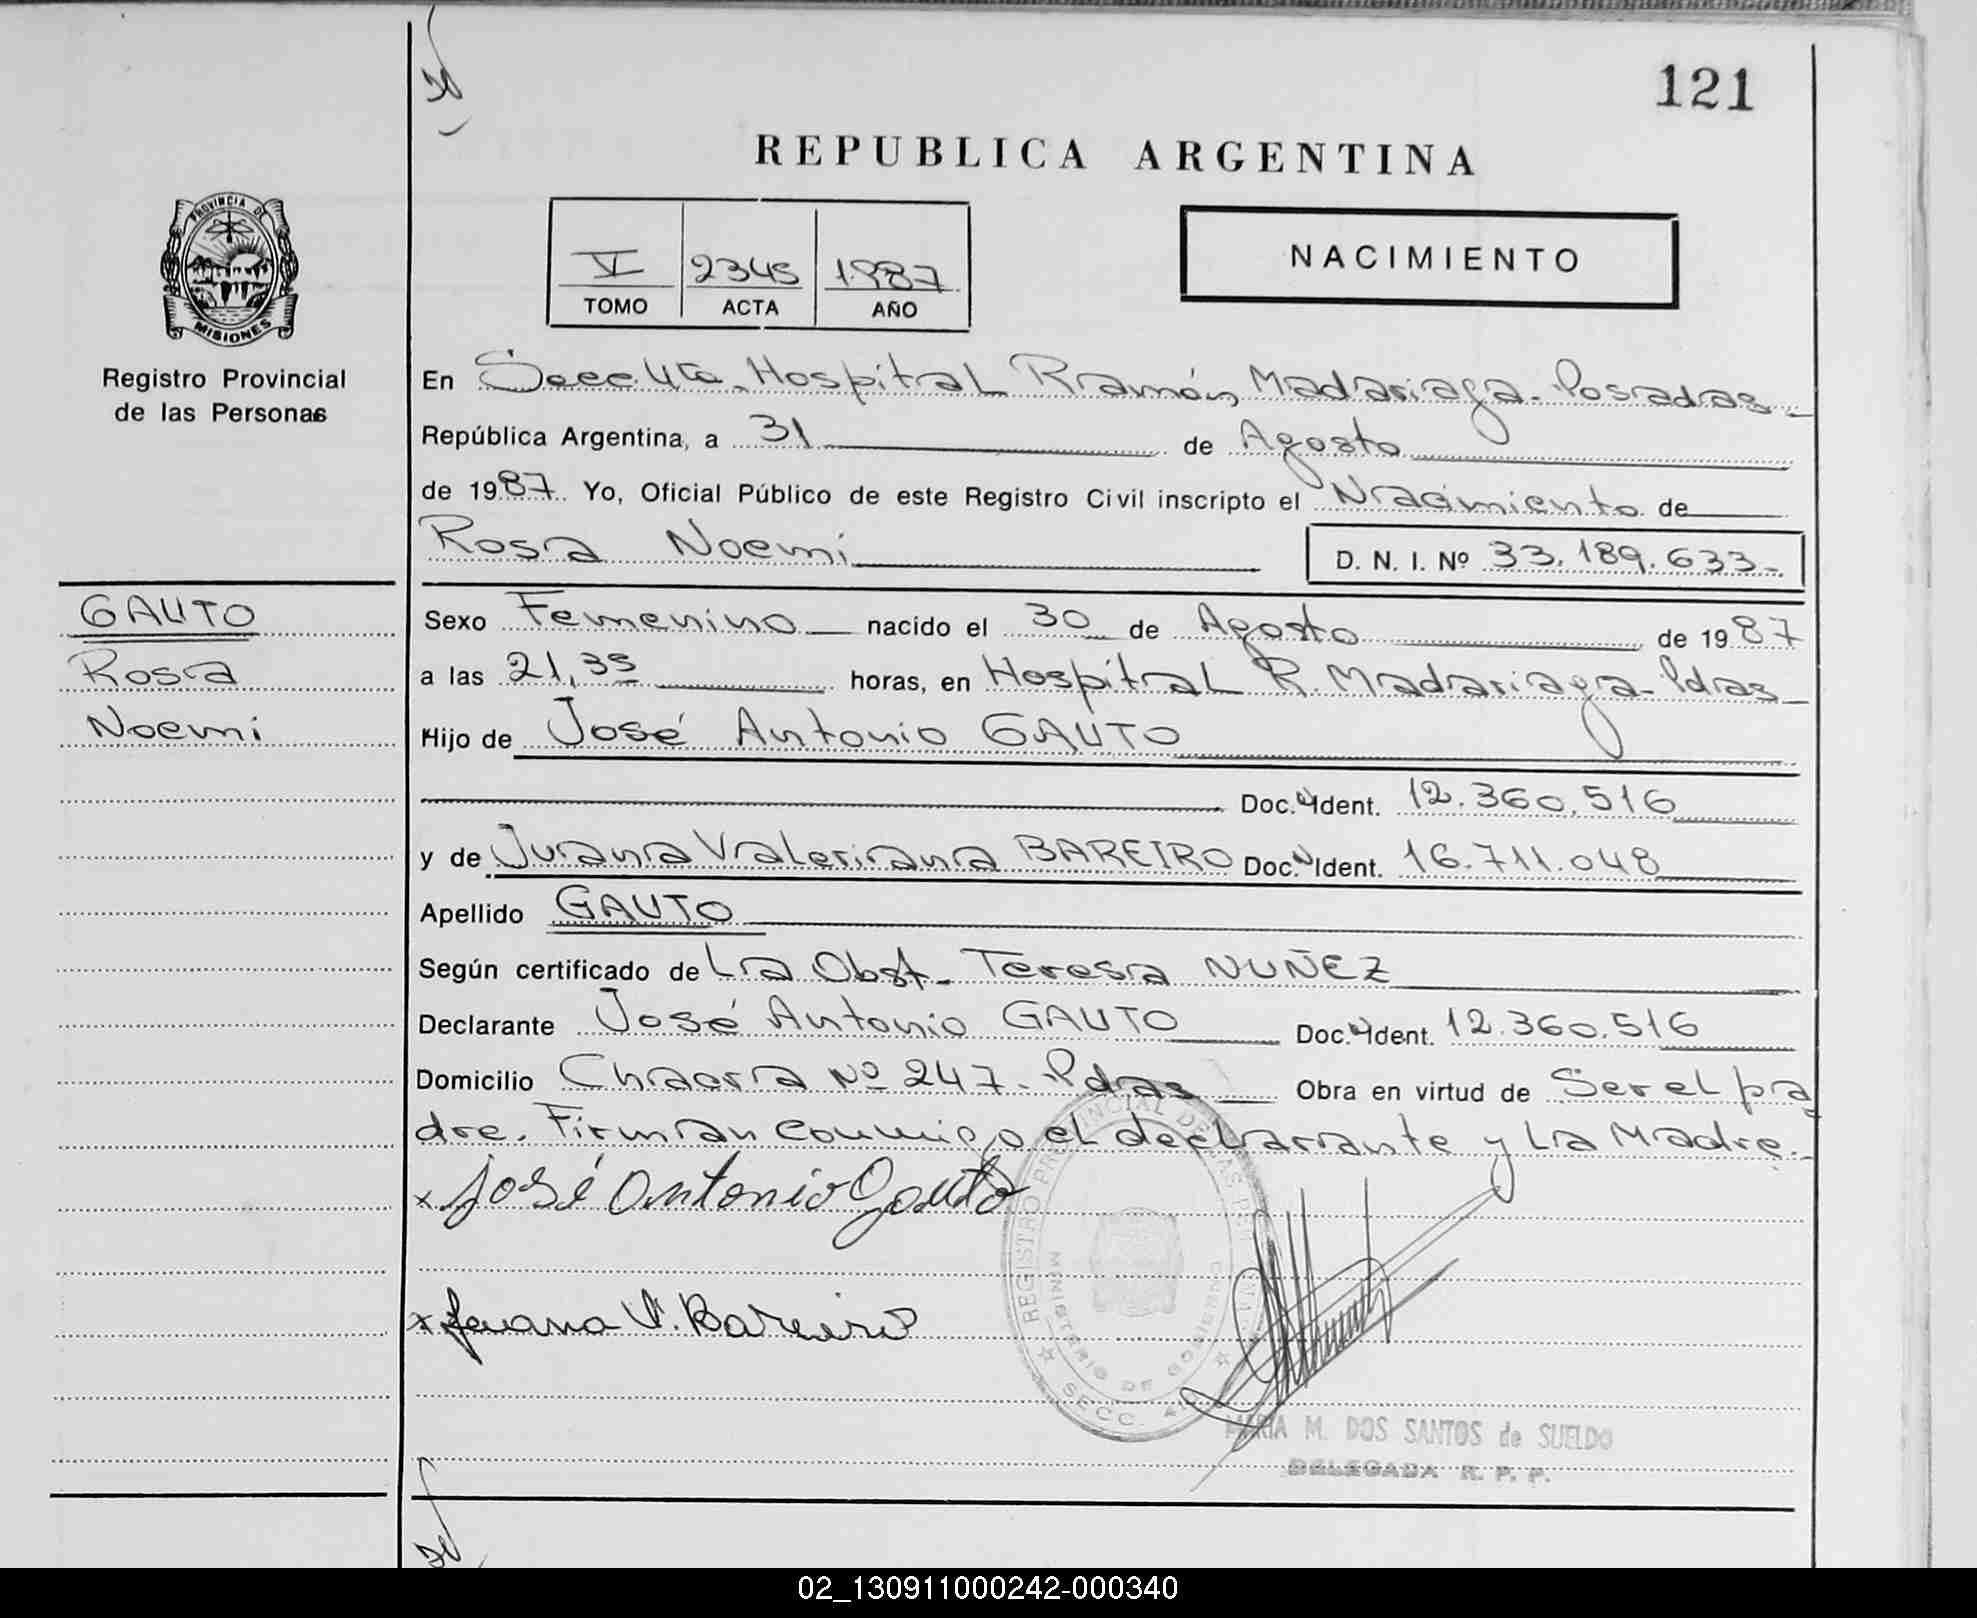 121
REPUBLICA ARGENTINA
PROVINCIA DE
MISIONES
V 2345 1987
TOMO ACTA AÑO
NACIMIENTO
Registro Provincial
de las Personas
En Hospital Ramón Madariaga - Posadas -
República Argentina, a 31 de Agosto
de 1987. Yo, Oficial Público de este Registro Civil inscripto el Nacimiento de
Rosa Noemi
D. N. I. Nº 33.189.633-
GAUTO
Rosa
Noemi
Sexo Femenino nacido el 30 de Agosto de 1987
a las 21,35 horas, en Hospital R. Madariaga - Pdas
Hijo de José Antonio GAUTO
Doc. Ident. 12.360.516
y de Juana Valeriana BAREIRO Doc. Ident. 16.711.048
Apellido GAUTO
Según certificado de La Obst. Teresa NUÑEZ
Declarante José Antonio GAUTO Doc. Ident. 12.360.516
Domicilio Chacra Nº 247 - Pdas Obra en virtud de Ser el pa
dre. Firman conmigo el declarante y La Madre.-
x José Antonio Gauto
x Juana V. Bareiro
REGISTRO PROVINCIAL DE LAS PER
MINISTERIO DE GOBIERNO
SECC.
MARIA M. DOS SANTOS de SUELDO
DELEGADA R. P. P.
02_130911000242-000340